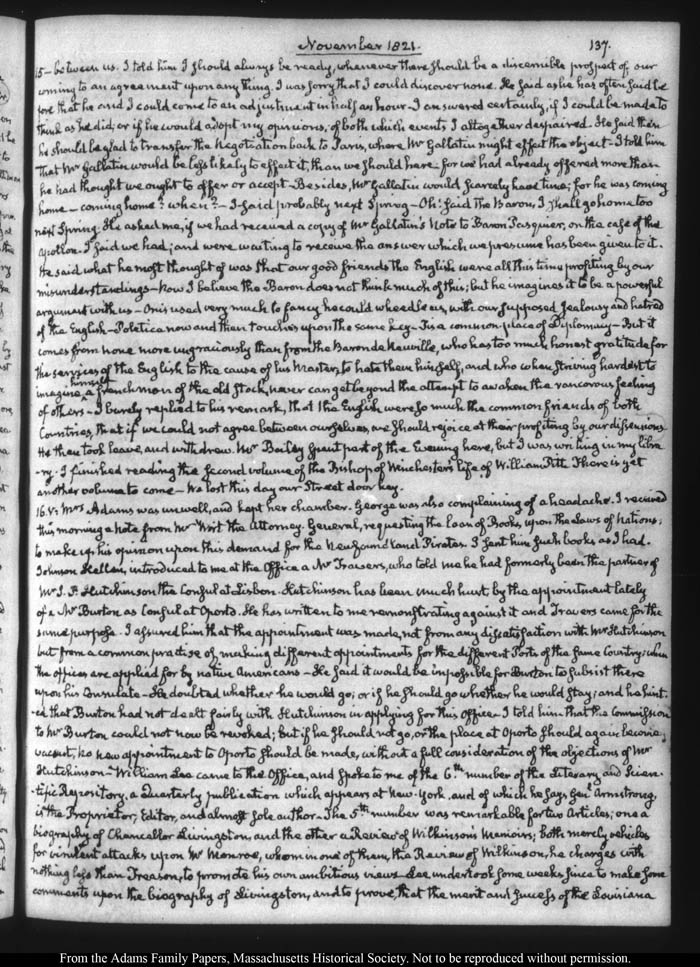 November 1821.
137.
15 – between us. I told him I should always be ready, whenever there should be a discernible prospect of our
coming to an agreement upon any thing. I was sorry that I could discover none. He said as he has often said be
fore that he and I could come to an adjustment in half an hour – I answered certainly, if I could be made to
think as he did, or if he would adopt my opinions, of both which events I altogether despaired. He said then
he should be glad to transfer the Negotiation back to Paris, where Mr Gallatin might effect the object – I told him
that Mr Gallatin would be less likely to effect it, than we should here – for we had already offered more than
he had thought we ought to offer or accept – Besides, Mr Gallatin would scarcely have time; for he was coming
home – coming home? when? – I said probably next Spring – Oh! said the Baron, I shall go home too
next Spring. He asked me, if we had received a copy of Mr Gallatin's Note to Baron Pasquier, on the case of the
Apollon. I said we had; and were waiting to receive the answer which we presume has been given to it.
He said what he most thought of was that our good friends the English were all this time profiting by our
misunderstandings – Now I believe the Baron does not think much of this; but he imagines it to be a powerful
argument with us – Onis used very much to fancy he could wheedle us, with our supposed jealousy and hatred
of the English – Poletica now and then touches upon the same key – Tis a common place of Diplomacy – But it
comes from none more ungraciously than from the Baron de Neuville, who has too much honest gratitude for
the services of the English to the cause of his Master, to hate them himself, and who when striving hardest to
imagine himself a frenchman of the old Stock, never can get beyond the attempt to awaken the rancorous feeling
of others – I barely replied to his remark, that the English were so much the common friends of both
Countries, that if we could not agree between ourselves, we should rejoice at their profiting by our dissensions
He then took leave, and withdrew. Mr Bailey spent part of the Evening here, but I was writing in my libra
-ry. I finished reading the second volume of the Bishop of Winchester's life of William Pitt. There is yet
another volume to come – We lost this day our Street door key.
16. V. Mrs Adams was unwell, and kept her chamber. George was also complaining of a headache. I received
this morning a note from Mr Wirt the Attorney General, requesting the loan of Books, upon the Laws of Nations;
to make up his opinion upon this demand for the Newfoundland Pirates. I sent him such books as I had.
Johnson Hellen, introduced to me at the Office a Mr Travers, who told me he had formerly been the partner of
Mr I. P. Hutchinson the Consul at Lisbon. Hutchinson has been much hurt by the appointment lately
of a Mr Burton as Consul at Oporto. He has written to me remonstrating against it and Travers came for the
same purpose. I assured him that the appointment was made, not from any dissatisfaction with Mr Hutchinson
but from a common practise of making different appointments for the different Ports of the same Country; when
the offices are applied for by native Americans – He said it would be impossible for Burton to subsist there
upon his Consulate – He doubted whether he would go; or if he should go whether he would stay; and he hint.
-ed that Burton had not dealt fairly with Hutchinson in applying for this Office – I told him that the Commission
to Mr Burton could not now be revoked; but if he should not go, or the place at Oporto should again become
vacant, no new appointment to Oporto should be made, without a full consideration of the objections of Mr
Hutchinson – William Lee came to the Office, and spoke to me of the 6.th number of the Literary and Scien.
-tific Repository, a Quarterly publication which appears at New-York, and of which he says Genl Armstrong
is the Proprietor, Editor, and almost sole author – The 5th number was remarkable for two Articles; one a
biography of Chancellor Livingston, and the other a Review of Wilkinson's Memoirs; both merely vehicles
for virulent attacks upon Mr Monroe, whom in one of them, the Review of Wilkinson, he charges with
nothing less than Treason, to promote his own ambitious views – Lee undertook some weeks since to make some
comments upon the biography of Livingston, and to prove, that the merit and success of the Louisiana
From the Adams Family Papers, Massachusetts Historical Society. Not to be reproduced without permission.